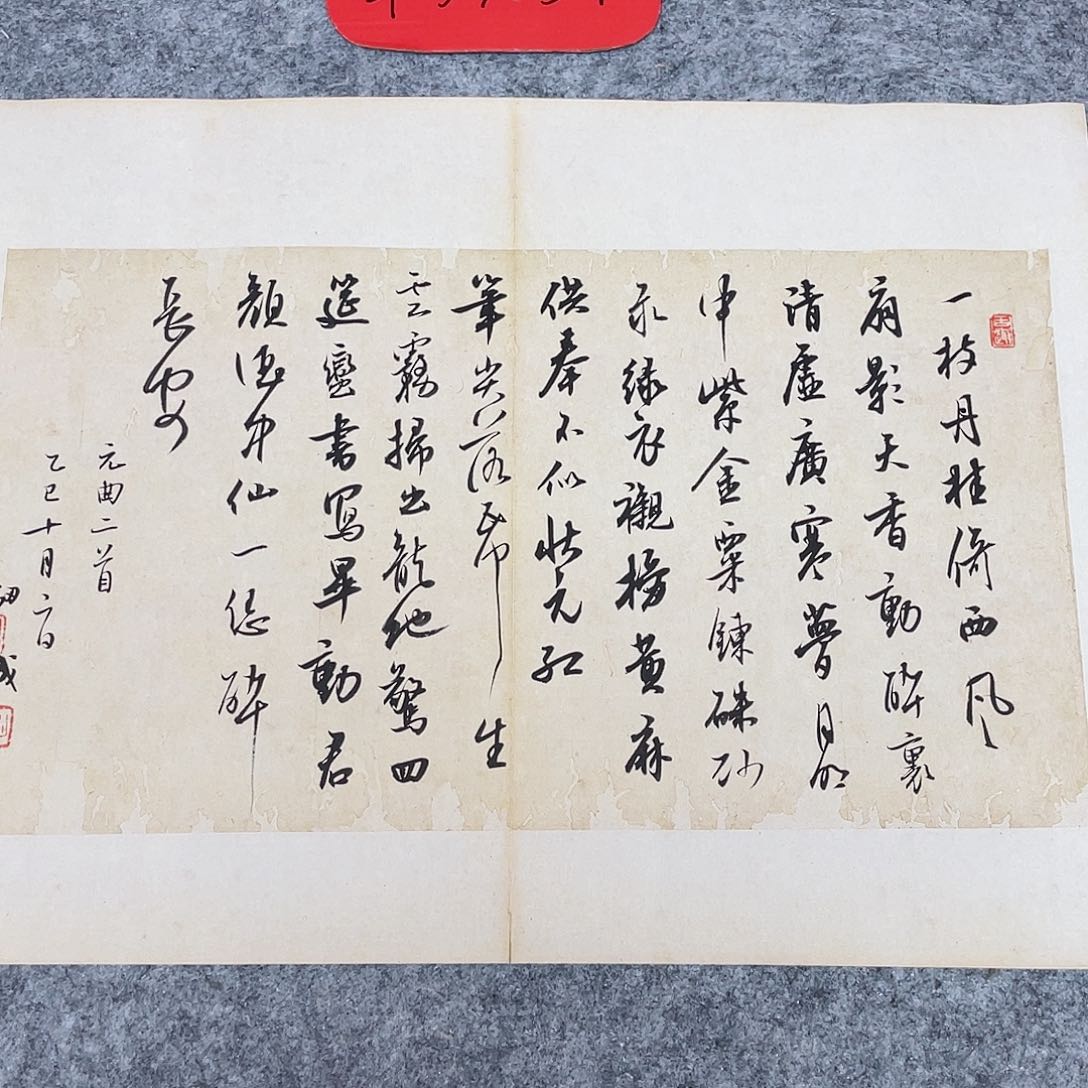 一枝丹桂倚西風
扇影天香動醉裏
清虛廣寒夢月明
中紫金粟鍊硃砂
汞綠衣襯榜黃麻
供奉不似狀元紅
筆尖落紙生
雲霧掃出龍蛇驚四
筵蠻書寫畢動君
顏酒中仙一恁醉
長安
元曲二首
乙巳十月日